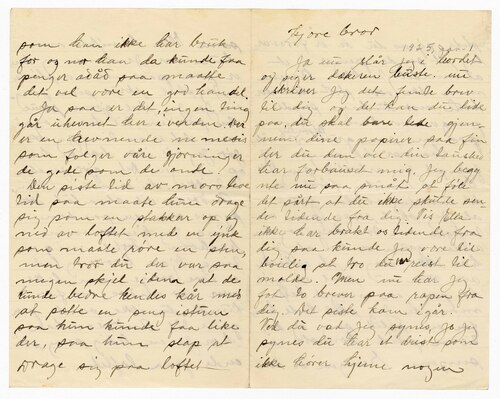 som han ikke har bruk
for og nor han da kunde faa
pengerådåd paa maatte
det vel vore en god handel
Ja saa er det ingen ting
går uhevnet her i verden der
er en hevnende nemesis
som følger våre gjerninger
de gode som de onde.
Den siste tid av moro leve
tid saa maatte hun drage
sig som en stakker op og
ned av loftet med en ynk
som maate röre en sten,
men tror du der var saa
megen skjel i dem at de
kunde bedre hendes kår med
at sætte en seng i stuen
saa hun kunde faa like
der, saa hun slap at
drage sig paa loftet
Kjære bror
1925, 1
Ja nu slår jeg i bordet
og siger nu
skriver Jeg det finde brev
til dig og det kan du lide
paa, du skal bare lede gjen
nem dine papirer saa fin
der du dem vel. din taushet
har forbauset mig. Jeg begyn
te nu saa smått at föle
det sårt at du ikke skulde sen
de tidende fra dig. Vis Ella
ikke har brakt os tidende fra
dig saa kunde Jeg vore til
böielig at tro du var reist til
molde. Men nu har Jeg
fåt to brever paa rapen fra
dig. Det siste kom igår.
Vet du vad Jeg synes, jo Jeg
synes du har et bust som
ikke hörer hjeme nogen